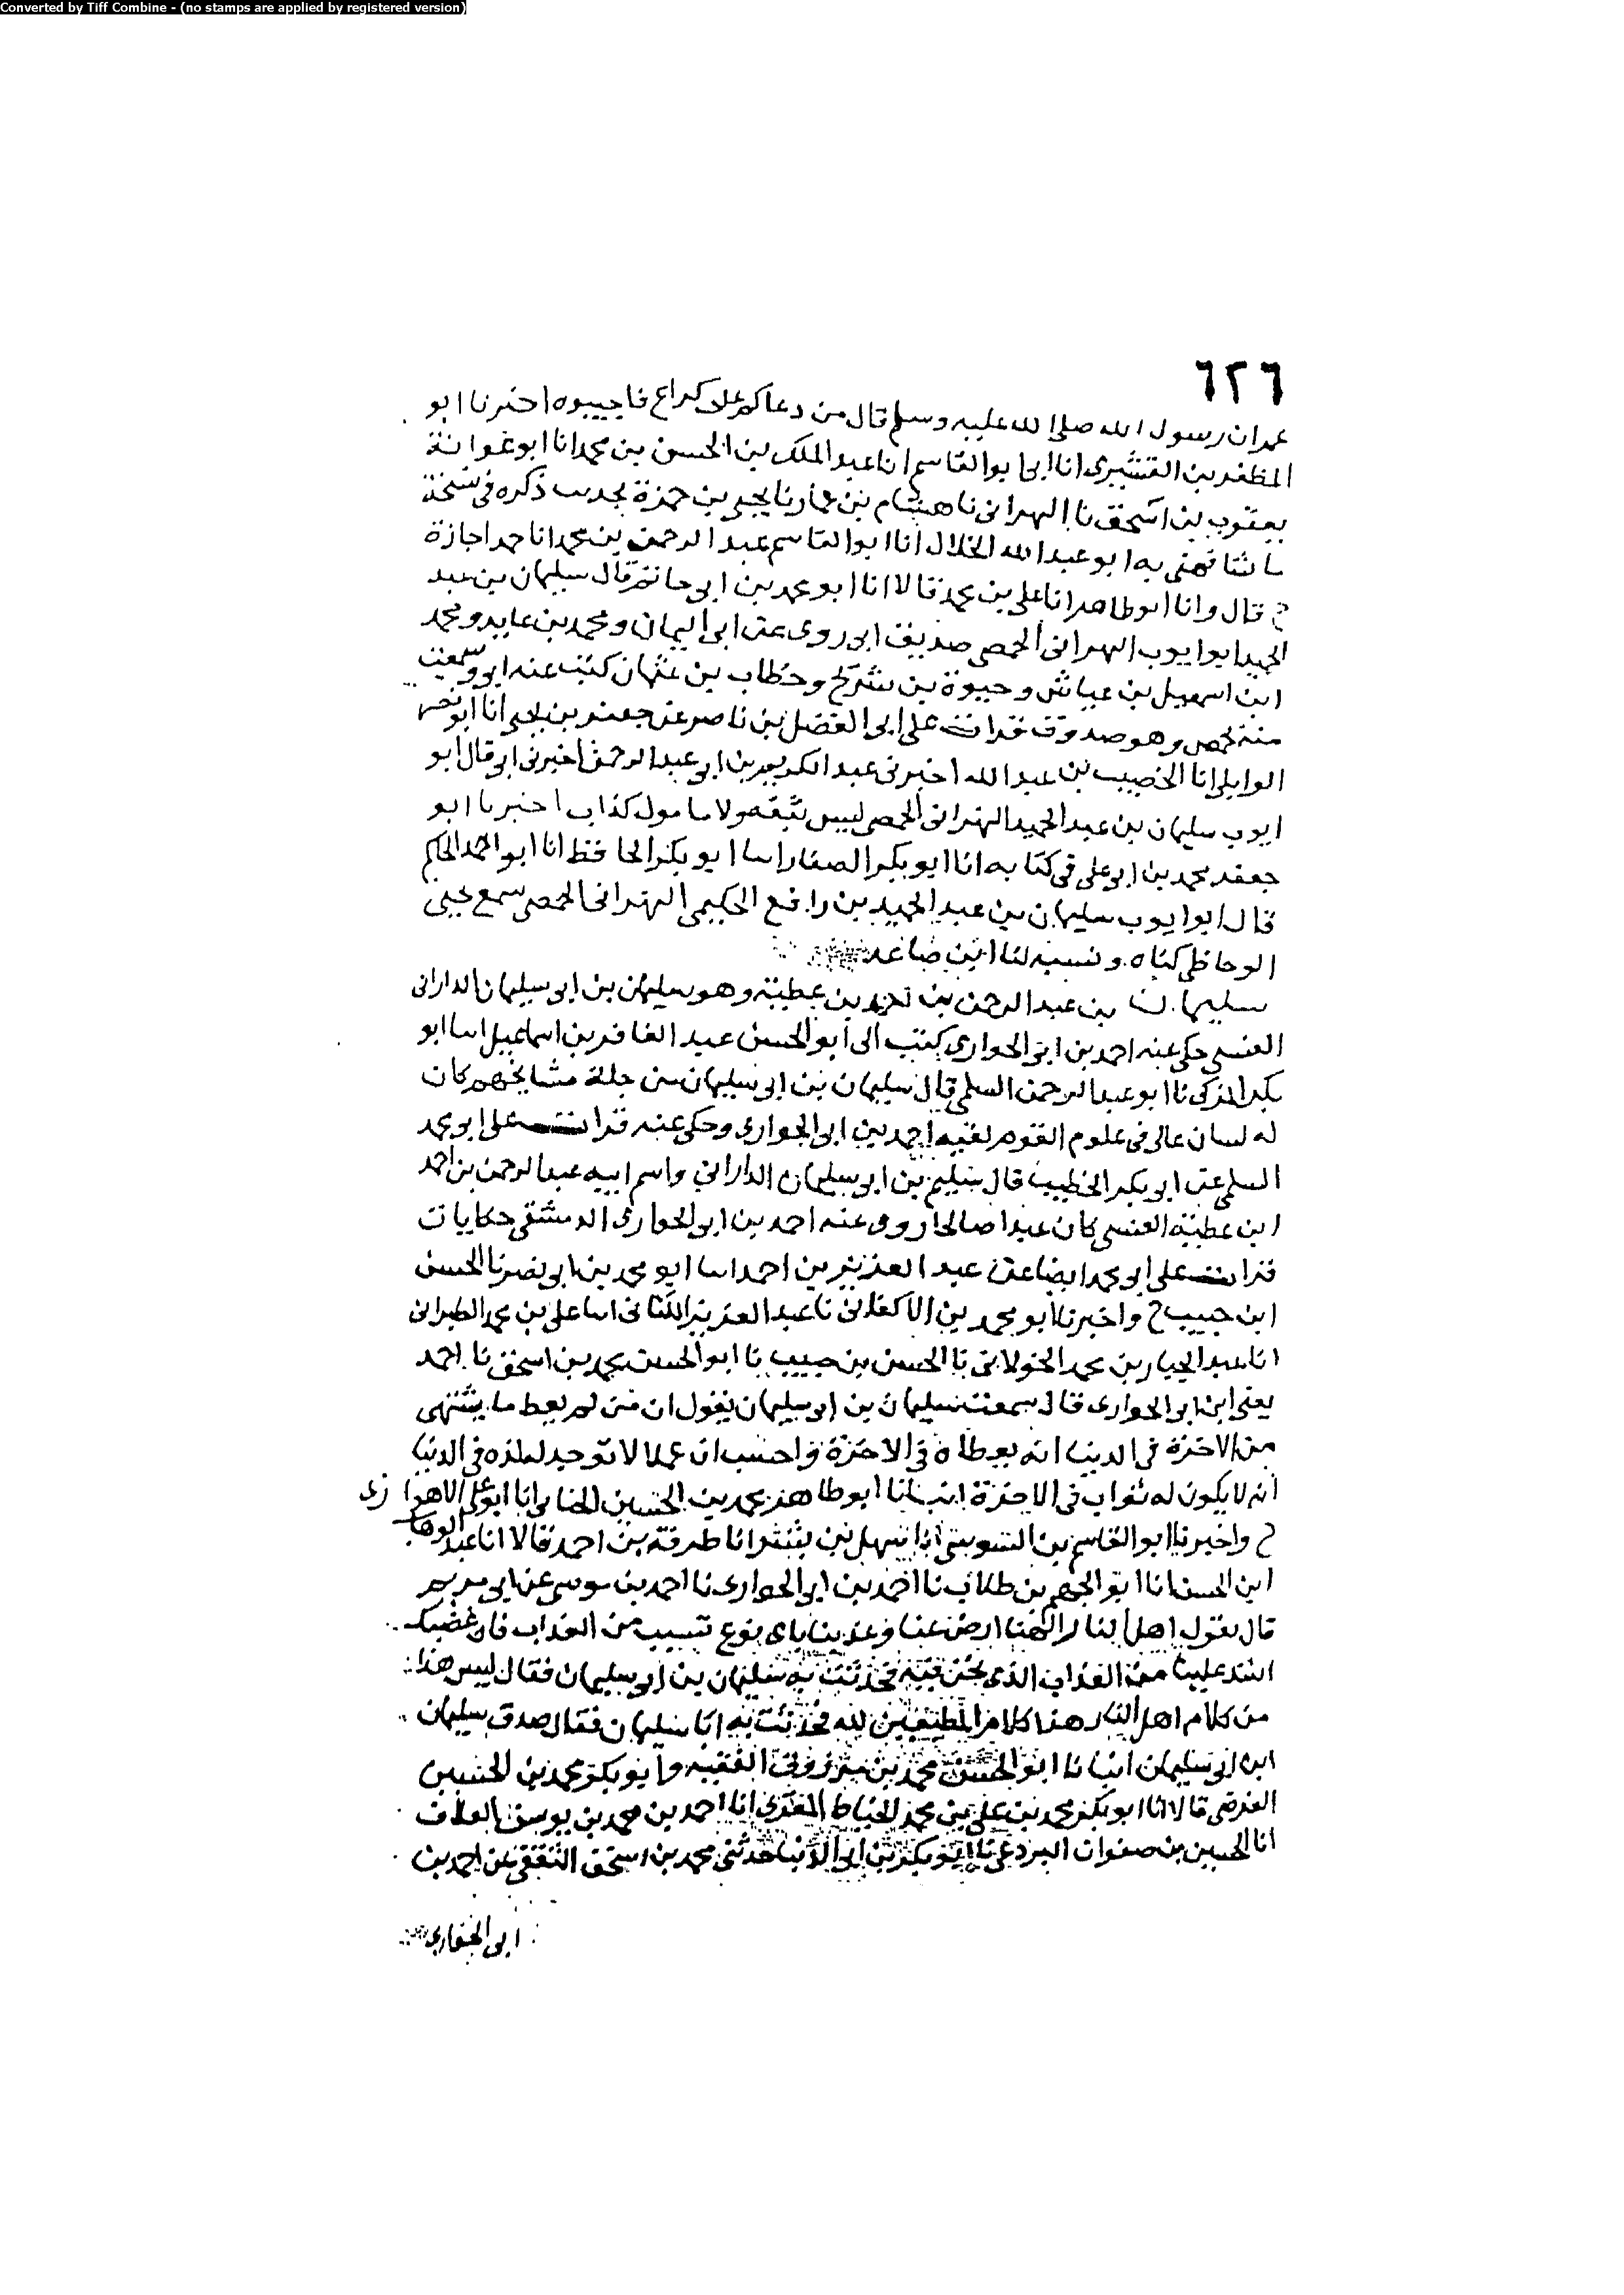 Converted by Tiff Combine - (no stamps are applied by registered version)
٦٢٦
عمر ان رسول الله صلى الله عليه وسلم قال من دعاكم على كراع فاجيبوه اخبرنا ابو
المظفر بن القشيرى انا ابى ابو القاسم انا عبد الملك بن الحسن بن محمد انا ابو عوانة
يعقوب بن اسحق نا البهرانى نا هشام بن عمار نا يحيى بن حمزة بحديث ذكره فى نسخة
ما شافهنى به ابو عبد الله الخلال انا ابو القاسم عبد الرحمن بن محمد انا حمد اجازة
ح قال وانا ابو طاهر انا على بن محمد قالا انا ابو محمد بن ابى حاتم قال سليمان بن عبد
الحميد ابو ايوب البهرانى الحمصى صديق ابى روى عن ابى اليمان ومحمد بن عايد ومحمد
ابن اسمعيل بن عياش وحيوة بن شريح وخطاب بن عثمان كتب عنه ابى وسمعت
منه بحمص وهو صدوق قرات على ابى الفضل بن ناصر عن جعفر بن يحيى انا ابو نصر
الوايلى انا الخصيب بن عبد الله اخبرنى عبد الكريم بن ابى عبد الرحمن اخبرنى ابى قال ابو
ايوب سليمان بن عبد الحميد البهرانى الحمصى ليس بثقه ولا مامون كذاب اخبرنا ابو
جعفر محمد بن ابى على فى كتابه انا ابو بكر الصفار انا ابو بكر الحافظ انا ابو احمد الحاكم
قال ابو ايوب سليمان بن عبد الحميد بن رافع الحكيمى البهرانى الحمصى سمع يحيى
الوحاظى كناه ونسبه لنا ابن صاعد
سليمان بن عبد الرحمن بن احمد بن عطية وهو سليمان بن ابى سليمان الدارانى
العنسى حكى عنه احمد بن ابى الحوارى كتب الى ابو الحسن عبد الغافر بن اسماعيل انا ابو
بكر المزكى نا ابو عبد الرحمن السلمى قال سليمان بن ابى سليمان من جلة مشايخهم كان
له لسان عالى فى علوم القوم لقيه احمد بن ابى الحوارى وحكى عنه قرات على ابو محمد
السلمى عن ابو بكر الخطيب قال سليم بن ابى سليمان الدارانى واسم ابيه عبد الرحمن بن احمد
ابن عطية العنسى كان عبدا صالحا روى عنه احمد بن ابى الحوارى الدمشقى حكايات
قرات على ابى محمد ايضا عن عبد العزيز بن احمد انا ابو محمد بن ابى نصر نا الحسن
ابن حبيب ح واخبرنا ابو محمد بن الاكفانى نا عبد العزيز الكتانى انا على بن محمد الطبرانى
انا عبد الجبار بن محمد الخولانى نا الحسن بن حبيب نا ابو الحسن محمد بن اسحق نا احمد
يعنى ابن ابى الحوارى قال سمعت سليمان بن ابى سليمان يقول ان من لم يعط ما يشتهى
من الاخرة فى الدنيا انه يعطاه فى الاخرة واحسب ان عملا لا توجد له لذة فى الدنيا
انه لا يكون له ثواب فى الاخرة انبانا ابو طاهر محمد بن الحسين الحنائى انا ابو على الاهوازى
ح واخبرنا ابو القاسم بن السوسى انا سهل بن بشر انا طرفة بن احمد قالا انا عبد الوهاب
ابن الحسن انا ابو الجهم بن طلاب نا احمد بن ابى الحوارى نا احمد بن موسى عن ابى مريم
قال يقول اهل النار الهنا ارض عنا وعذبنا باى نوع شيت من العذاب فان غضبك
اشد علينا من العذاب الذى نحن فيه فحدثت به سليمان بن ابى سليمان فقال ليس هذا
من كلام اهل النار هذا كلام المطيعين لله فحدثت به ابا سليمان فقال صدق سليمان
ابن ابى سليمان انبانا ابو الحسن محمد بن مرزوق الفقيه وابو بكر محمد بن الحسين
الفرضى قالا انا ابو بكر محمد بن على بن محمد الخياط المقرى انا احمد بن محمد بن يوسف العلاف
انا الحسين بن صفوان البردعى نا ابو بكر بن ابى الدنيا حدثنى محمد بن اسحق الثقفى عن احمد بن
ابى الحوارى